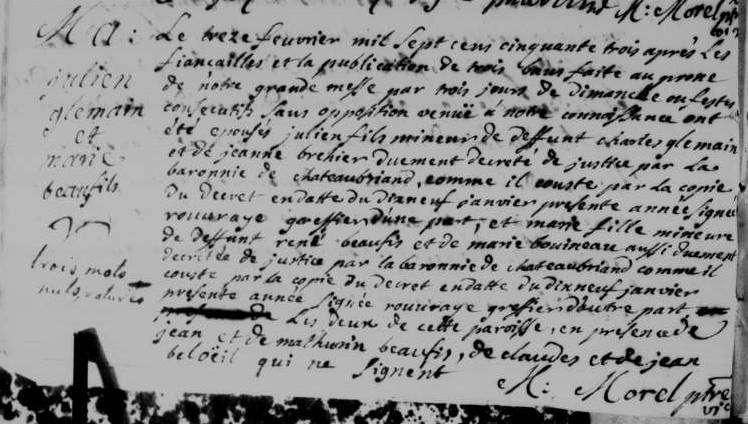 M: Morel ptre
Ma: Le treze feuvrier mil sept cens cinquante trois après les
fiancailles et la publication de trois bans faite au prone
julien
de notre grande messe par trois jours de dimanche ou festes
glemain
consecutifs sans opposition venuë à notre connaissance ont
et
été epousés julien fils mineur de deffunt charles glemain
marie
et de jeanne brehier duement decreté de justice par la
beaufils
baronnie de chateaubriand, comme il conste par la copie
du decret en datte du dixneuf janvier presente année signée
rouuraye greffier d'une part, et marie fille mineure
de deffunt rené beaufis et de marie bouineau aussi duement
decretée de justice par la baronnie de chateaubriand comme il
trois mots
conste par la copie du decret en datte du dixneuf janvier
nuls, raturés
presente année signée rouuraye greffier d'outre part
les deux de cette paroisse, en presence de
jean et de mathurin beaufis, de claudes et de jean
beloëil qui ne signent
M: Morel ptre
vic